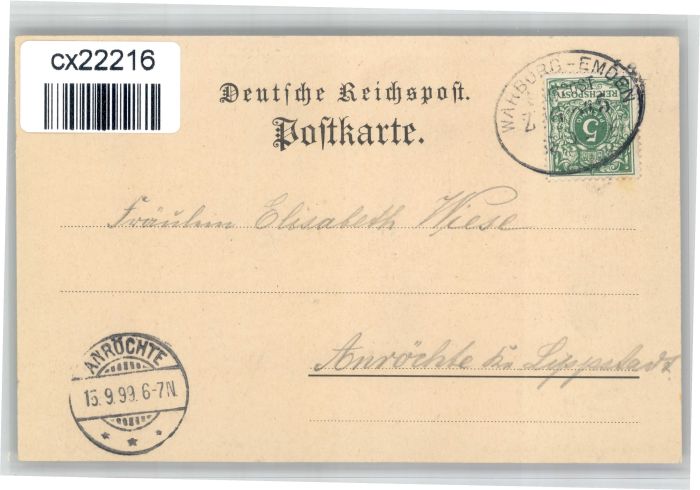 cx22216
Deutsche Reichspost.
Postkarte.
WARBURG-EMDEN
REICHSPOST
5
Fräulein Elisabeth Wiese
ANRÖCHTE
15.9.99.6-7N.
Anröchte b/ Lippstadt